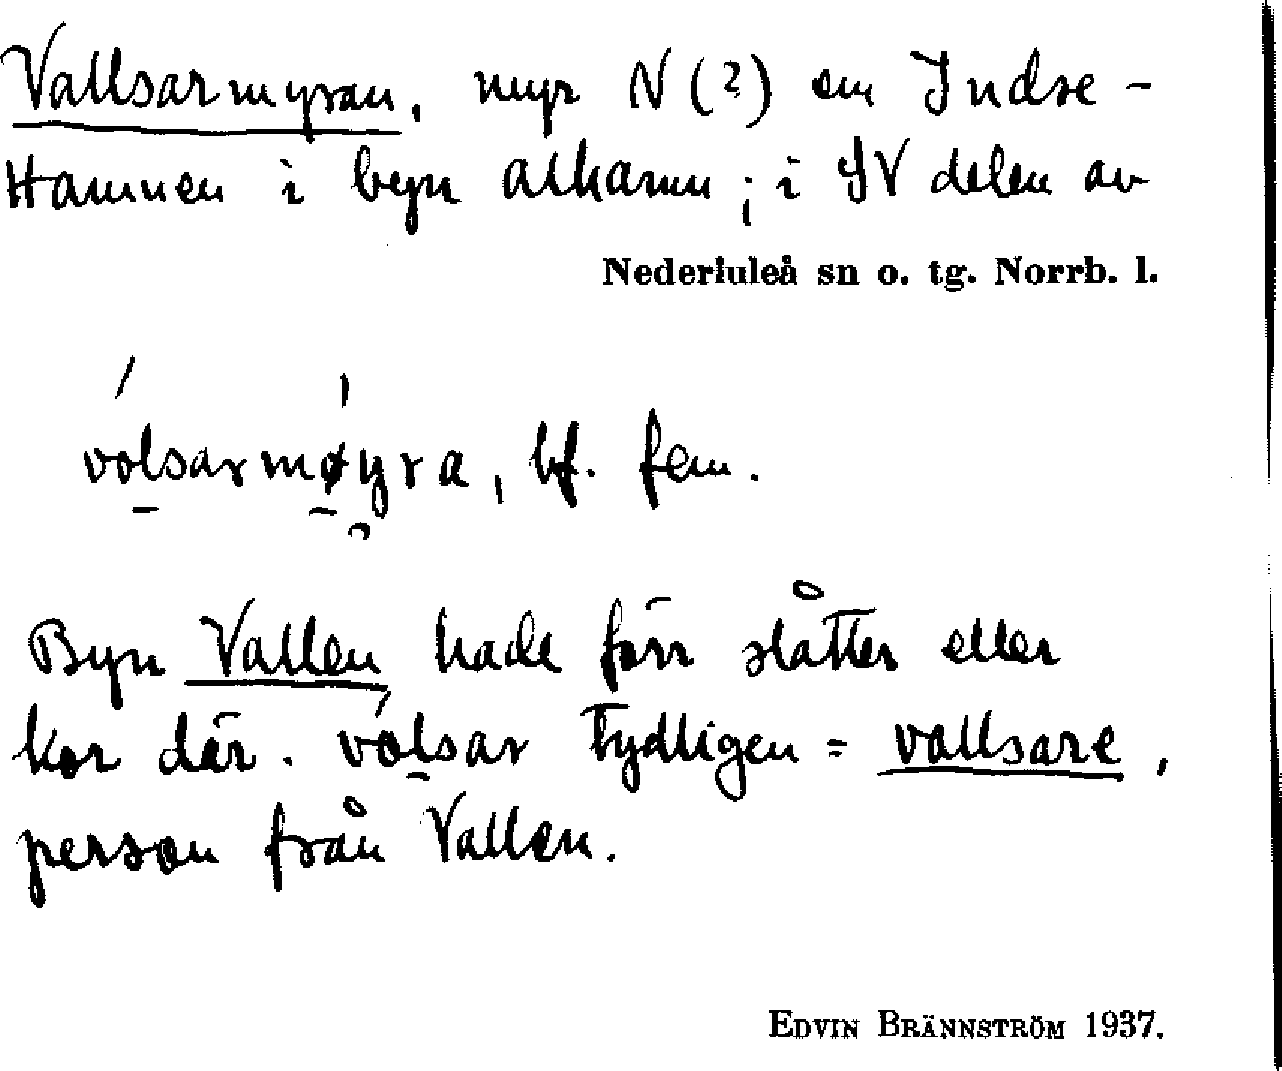 Vallsarmyran, myr N (?) om Indre-
Hamnen i byn Alhamn; i SV delen av
Nederluleå sn o. tg. Norrb. l.
vólsarmøyra, bf. fem.
Byn Vallen hade förr slåtter eller
kor där. vólsar tydligen = vallsare,
person från Vallen.
EDVIN BRÄNNSTRÖM 1937.